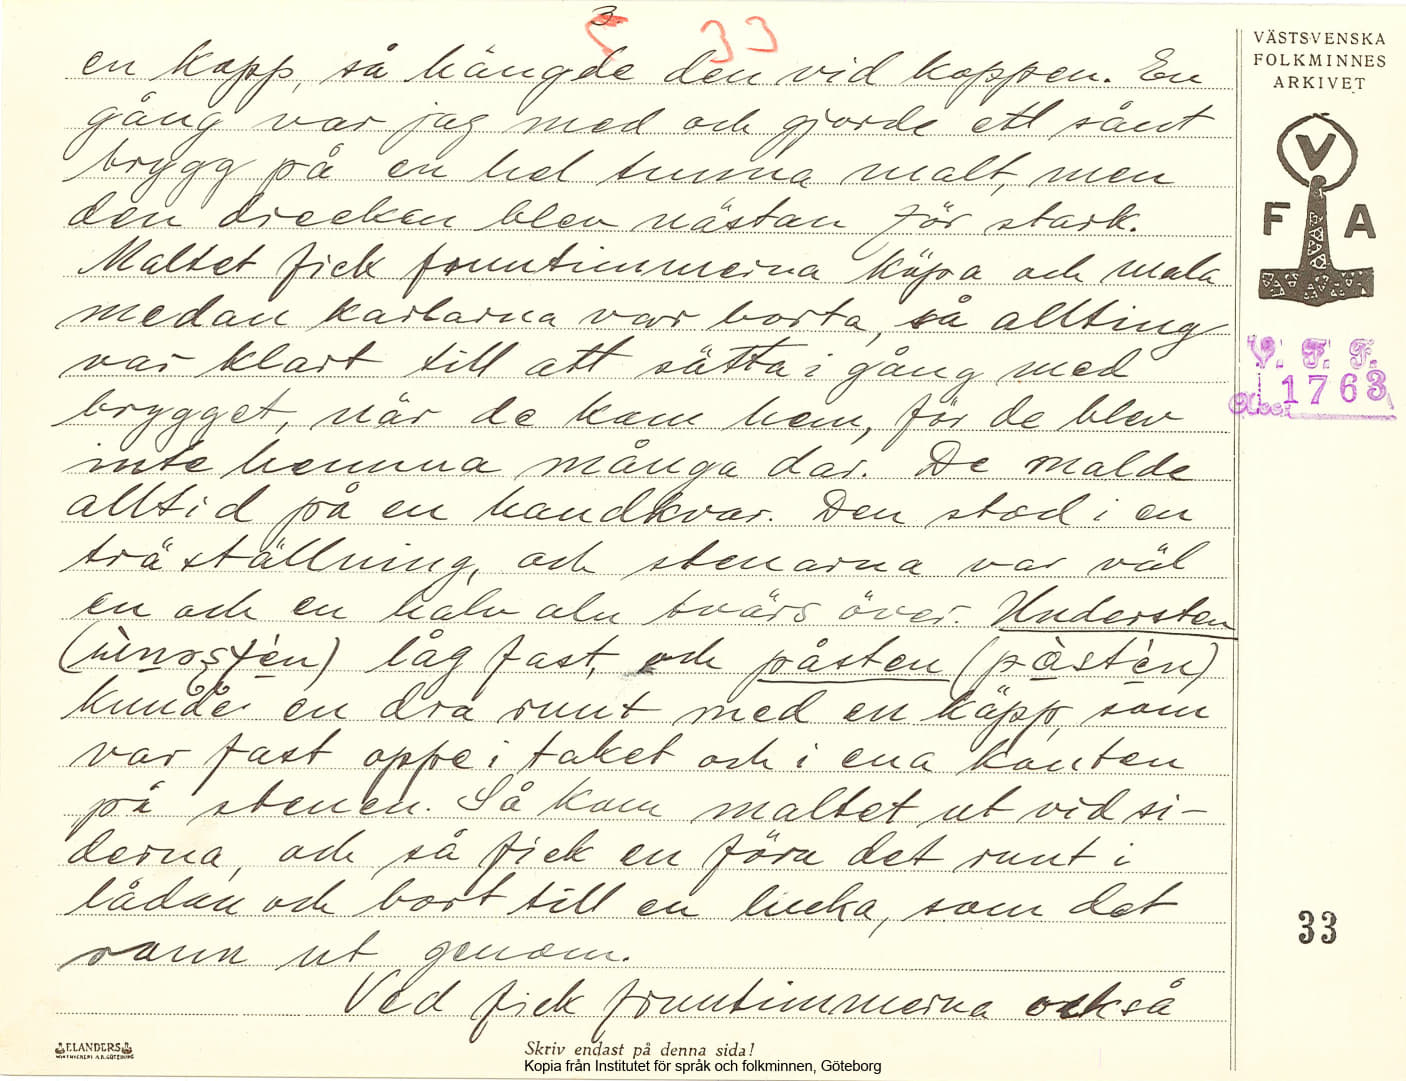 3.
33
en kopp, så hängde den vid koppen. En
gång var jag med och gjorde ett sånt
brygg på en hel tunna malt, men
den dricken blev nästan för stark.
Maltet fick fruntimmerna köpa och mala
medan karlarna var borta, så allting
var klart till att sätta i gång med
brygget, når de kom hem, för de blev
inte hemma många dar. De malde
alltid på en handkvar. Den stod i en
träställning, och stenarna var väl
en och en halv aln tvärs över. Understen
låg fast, och påsten (pàsté̀n)
kunde en dra runt med en käpp, som
var fast oppe i taket och i ena kanten
på stenen. Så kom maltet ut vid si-
derna, och så fick en föra det runt i
lådan och bort till en lucka, som det
rann ut genom.
Ved fick fruntimmerna också
VÄSTSVENSKA
FOLKMINNES
ARKIVET
V
F A
V. F. F.
Acc. 1763
33
ELANDERS
Skriv endast på denna sida!
Kopia från Institutet för språk och folkminnen, Göteborg